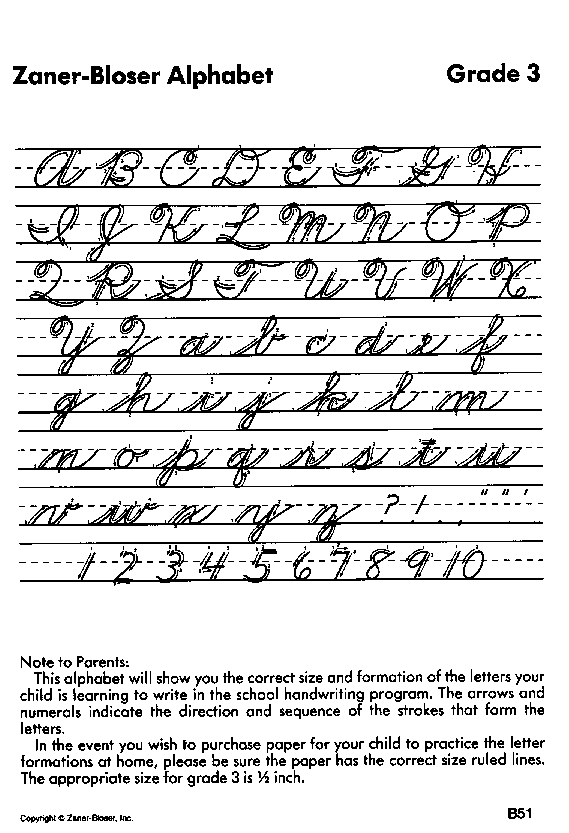 Zaner-Bloser Alphabet Grade 3
A B C D E F G H
I J K L M N O P
Q R S T U V W X
Y Z a b c d e f
g h i j k l m
n o p q r s t u
v w x y z ? ! . , " " '
1 2 3 4 5 6 7 8 9 10
Note to Parents:
This alphabet will show you the correct size and formation of the letters your
child is learning to write in the school handwriting program. The arrows and
numerals indicate the direction and sequence of the strokes that form the
letters.
In the event you wish to purchase paper for your child to practice the letter
formations at home, please be sure the paper has the correct size ruled lines.
The appropriate size for grade 3 is ½ inch.
Copyright © Zaner-Bloser, Inc. B51